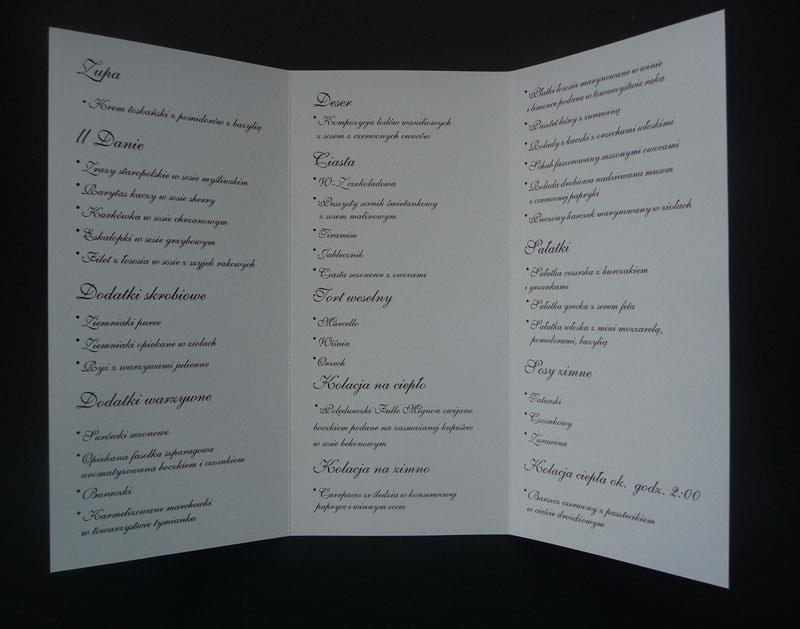 Zupa
* Krem toskański z pomidorów z bazylią
II Danie
* Zrazy staropolskie w sosie myśliwskim
* Barytas kaczy w sosie sherry
* Karkówka w sosie chrzanowym
* Eskalopki w sosie grzybowym
* Filet z łososia w sosie z szyjek rakowych
Dodatki skrobiowe
* Ziemniaki puree
* Ziemniaki opiekane w ziołach
* Ryż z warzywami julienne
Dodatki warzywne
* Surówki sezonowe
* Opiekana fasolka szparagowa
aromatyzowana boczkiem i czosnkiem
* Buraczki
* Karmelizowane marchewki
w towarzystwie tymianku
Deser
* Kompozycja lodów waniliowych
z sosem z czerwonych owoców
Ciasta
* W-Z czekoladowa
* Puszysty sernik śmietankowy
z sosem malinowym
* Tiramisu
* Jabłecznik
* Ciasta sezonowe z owocami
Tort weselny
* Marcello
* Wiśnia
* Orzech
Kolacja na ciepło
* Polędwiczki Fulle Mignon owijane
boczkiem podane na zasmażanej kapuście
w sosie bekonowym
Kolacja na zimno
* Carrpacio ze śledzia w konserwowej
papryce i winnym occie
* Płatki łososia marynowane w winie
i limonce podane w towarzystwie raka
* Pasztet leśny z żurawiną
* Rolady z kaczki z orzechami włoskimi
* Schab faszerowany suszonymi owocami
* Rolada drobiowa nadziewana musem
z czerwonej papryki
* Pieczony karczek marynowany w ziołach
Sałatki
* Sałatka cesarska z kurczakiem
i grzankami
* Sałatka grecka z serem feta
* Sałatka włoska z mini mozzarelą,
pomidorami, bazylią
Sosy zimne
* Tatarski
* Czosnkowy
* Żurawina
Kolacja ciepła ok. godz. 2:00
* Barszcz czerwony z pasztecikiem
w cieście drożdżowym